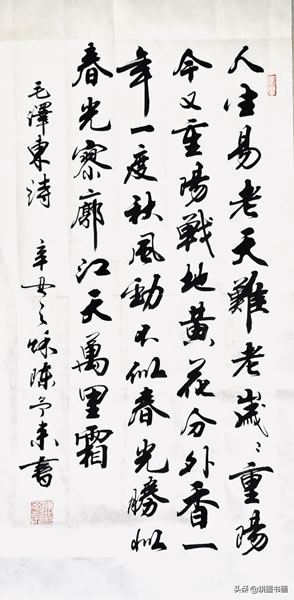 人生易老天難老歲々重陽
今又重陽戰地黃花分外香一
年一度秋風勁不似春光勝似
春光寥廓江天萬里霜
毛澤東詩 辛丑之秋陳書
头条